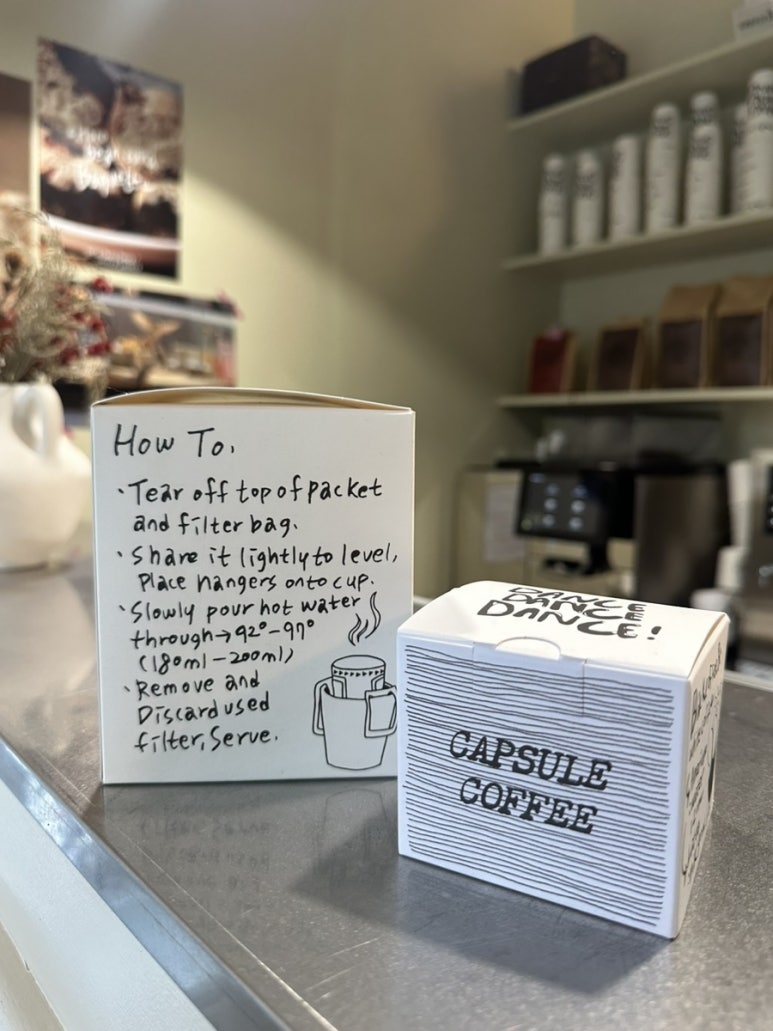 How To,
·Tear off top of packet
and filter bag.
·Share it lightly to level,
Place hangers onto cup.
·Slowly pour hot water
through→92°-97°
(180ml-200ml)
·Remove and
Discard used
filter, Serve.
DANCE
DANCE
DANCE!
CAPSULE
COFFEE